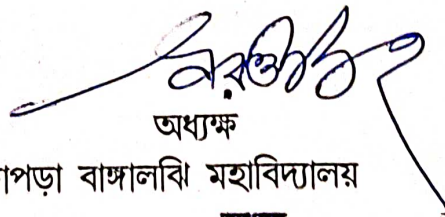 অধ্যক্ষ
পড়া বাঙ্গালঝি মহাবিদ্যালয়